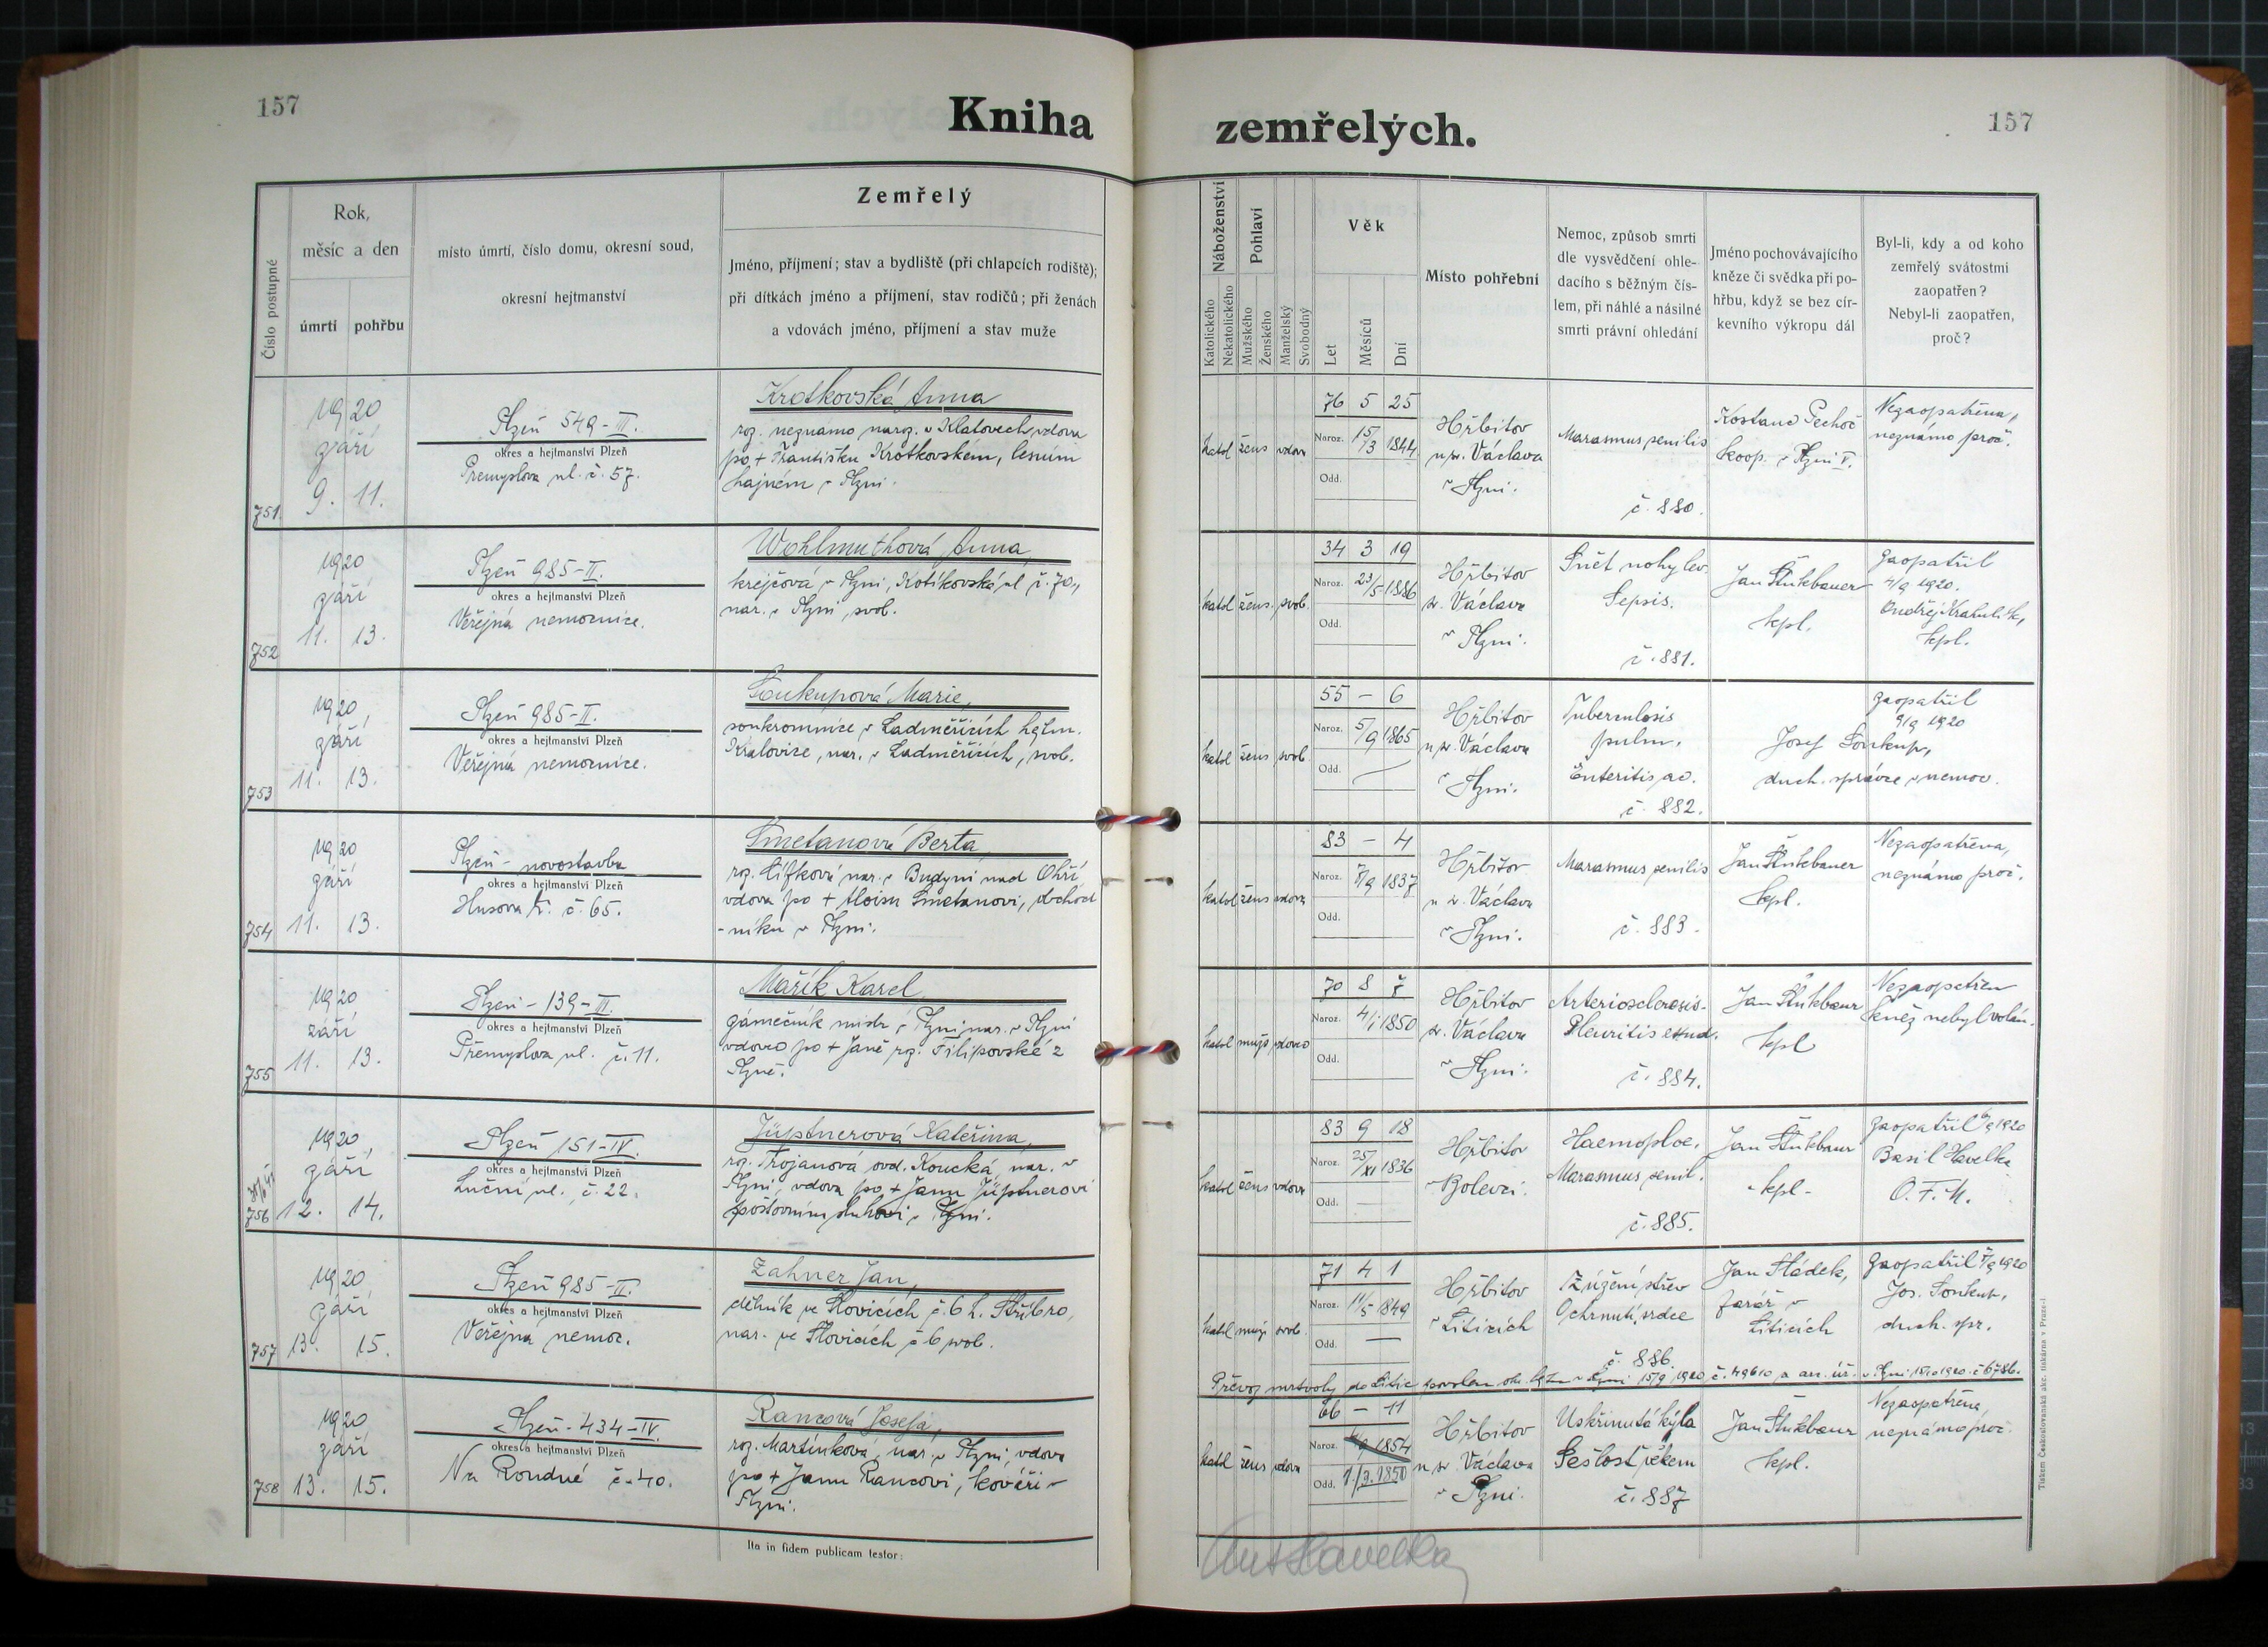 157
Kniha
zemřelých.
157
Číslo postupné
Rok,
měsíc a den
úmrtí
pohřbu
místo úmrtí, číslo domu, okresní soud,
okresní hejtmanství
Zemřelý
Jméno, příjmení; stav a bydliště (při chlapcích rodiště);
při dítkách jméno a příjmení, stav rodičů; při ženách
a vdovách jméno, příjmení a stav muže
Náboženství
Katolického
Nekatolického
Pohlaví
Mužského
Ženského
Manželský
Svobodný
Věk
Let
Měsíců
Dní
Místo pohřební
Nemoc, způsob smrti
dle vysvědčení ohle-
dacího s běžným čís-
lem, při náhlé a násilné
smrti právní ohledání
Jméno pochovávajícího
kněze či svědka při po-
hřbu, když se bez cír-
kevního výkropu dál
Byl-li, kdy a od koho
zemřelý svátostmi
zaopatřen?
Nebyl-li zaopatřen,
proč?
751.
1920
září
9. 11.
Plzeň 549-III.
okres a hejtmanství Plzeň
Přemyslova ul. č. 57.
Krotkovská Anna
roz. neznámo naroz. v Klatovech, vdova
po + Františku Krotkovském, lesním
hajném v Plzni.
katol žens vdova
76 5 25
Naroz. 15/3 1844
Odd.
Hřbitov
u sv. Václava
v Plzni.
Marasmus senilis
č. 880.
Kostanc Pechoč
koop. v Plzni V.
Nezaopatřena,
neznámo proč.
752
1920
září
11. 13.
Plzeň 985-II.
okres a hejtmanství Plzeň
Veřejná nemocnice.
Wohlmuthová Anna,
krejčová v Plzni, Kotíkovská ul č. 70.,
nar. v Plzni, svob.
katol žens. svob.
34 3 19
Naroz. 23/5 1886
Odd.
Hřbitov
sv. Václava
v Plzni.
Snět nohy lev.
Sepsis.
č. 881.
Jan Štukbauer
kpl.
Zaopatřil
4/9 1920.
Ondřej Krahulík,
kpl.
753
1920
září
11. 13.
Plzeň 985-II.
okres a hejtmanství Plzeň
Veřejná nemocnice.
Soukupová Marie,
soukromnice v Ladměřicích hejtm.
Kralovice, nar. v Ladměřicích, svob.
katol žens svob.
55 - 6
Naroz. 5/9 1865
Odd.
Hřbitov
u sv. Václava
v Plzni.
Tuberculosis
pulm.
Enteritis ac.
č. 882.
Zaopatřil
9/9 1920
Josef Soukup,
duch. správce v nemoc.
754
1920
září
11. 13.
Plzeň - novostavba
okres a hejtmanství Plzeň
Husova tř. č. 65.
Smetanová Berta,
roz. Lífková nar. v Budyni nad Ohří
vdova po + Aloisu Smetanovi, důchod
-níku v Plzni.
katol žens vdova
83 - 4
Naroz. 7/9 1837
Odd.
Hřbitov
u sv. Václava
v Plzni.
Marasmus senilis
č. 883.
Jan Štukbauer
kpl.
Nezaopatřena,
neznámo proč.
755
1920
září
11. 13.
Plzeň - 139-III.
okres a hejtmanství Plzeň
Přemyslova ul. č. 11.
Mařík Karel
zámečník mistr v Plzni, nar. v Plzni
vdovec po + Janě roz. Filipovské z
Plzně.
katol mužs vdovec
70 8 7
Naroz. 4/1 1850
Odd.
Hřbitov
sv. Václava
v Plzni.
Arteriosclerosis.
Pleuritis exsud.
č. 884.
Jan Štukbauer
kpl
Nezaopatřen
kněz nebyl volán.
756
1920
září
12. 14.
Plzeň 151-IV.
okres a hejtmanství Plzeň
Luční ul. č. 22.
Jüptnerová Kateřina,
roz. Trojanová ovd. Koucká, nar. v
Plzni, vdova po + Janu Jüptnerovi
poštovním sluhovi v Plzni.
katol žens vdova
83 9 18
Naroz. 25/XI 1836
Odd.
Hřbitov
v Bolevci.
Haemoptoe.
Marasmus senil.
č. 885.
Jan Štukbauer
kpl.
Zaopatřil 6/9 1920
Basil Havelka
O. F. M.
757
1920
září
13. 15.
Plzeň 985-II.
okres a hejtmanství Plzeň
Veřejná nemoc.
Zahner Jan,
dělník ve Slovicích č. 6 h. Stříbro,
nar. ve Slovicích č 6 svob.
katol mužs svob.
71 4 1
Naroz. 11/5 1849
Odd. —
Hřbitov
v Liticích
Zúžení střev
Ochrnutí srdce
č. 886.
Jan Sládek,
farář v
Liticích
Zaopatřil 7/9 1920
Jos. Soukup,
duch. spr.
Převoz mrtvoly do Litic povolen ok. hejtm v Plzni 15/9 1920 č. 49610
758
1920
září
13. 15.
Plzeň - 434-IV.
okres a hejtmanství Plzeň
Na Roudné č. 40.
Rancová Josefa,
roz. Martínková, nar. v Plzni, vdova
po + Janu Rancovi, kováři v
Plzni.
katol žens vdova
66 - 11
Naroz. 1854
Odd. 1./3. 1850
Hřbitov
u sv. Václava
v Plzni.
Uskřinutá kýla
Sešlost věkem
č. 887
Jan Štukbauer
kpl.
Nezaopatřena,
neznámo proč.
Ita in fidem publicam testor:
Ant Havelka
Tiskem Českoslovanská akc. tiskárna v Praze-I